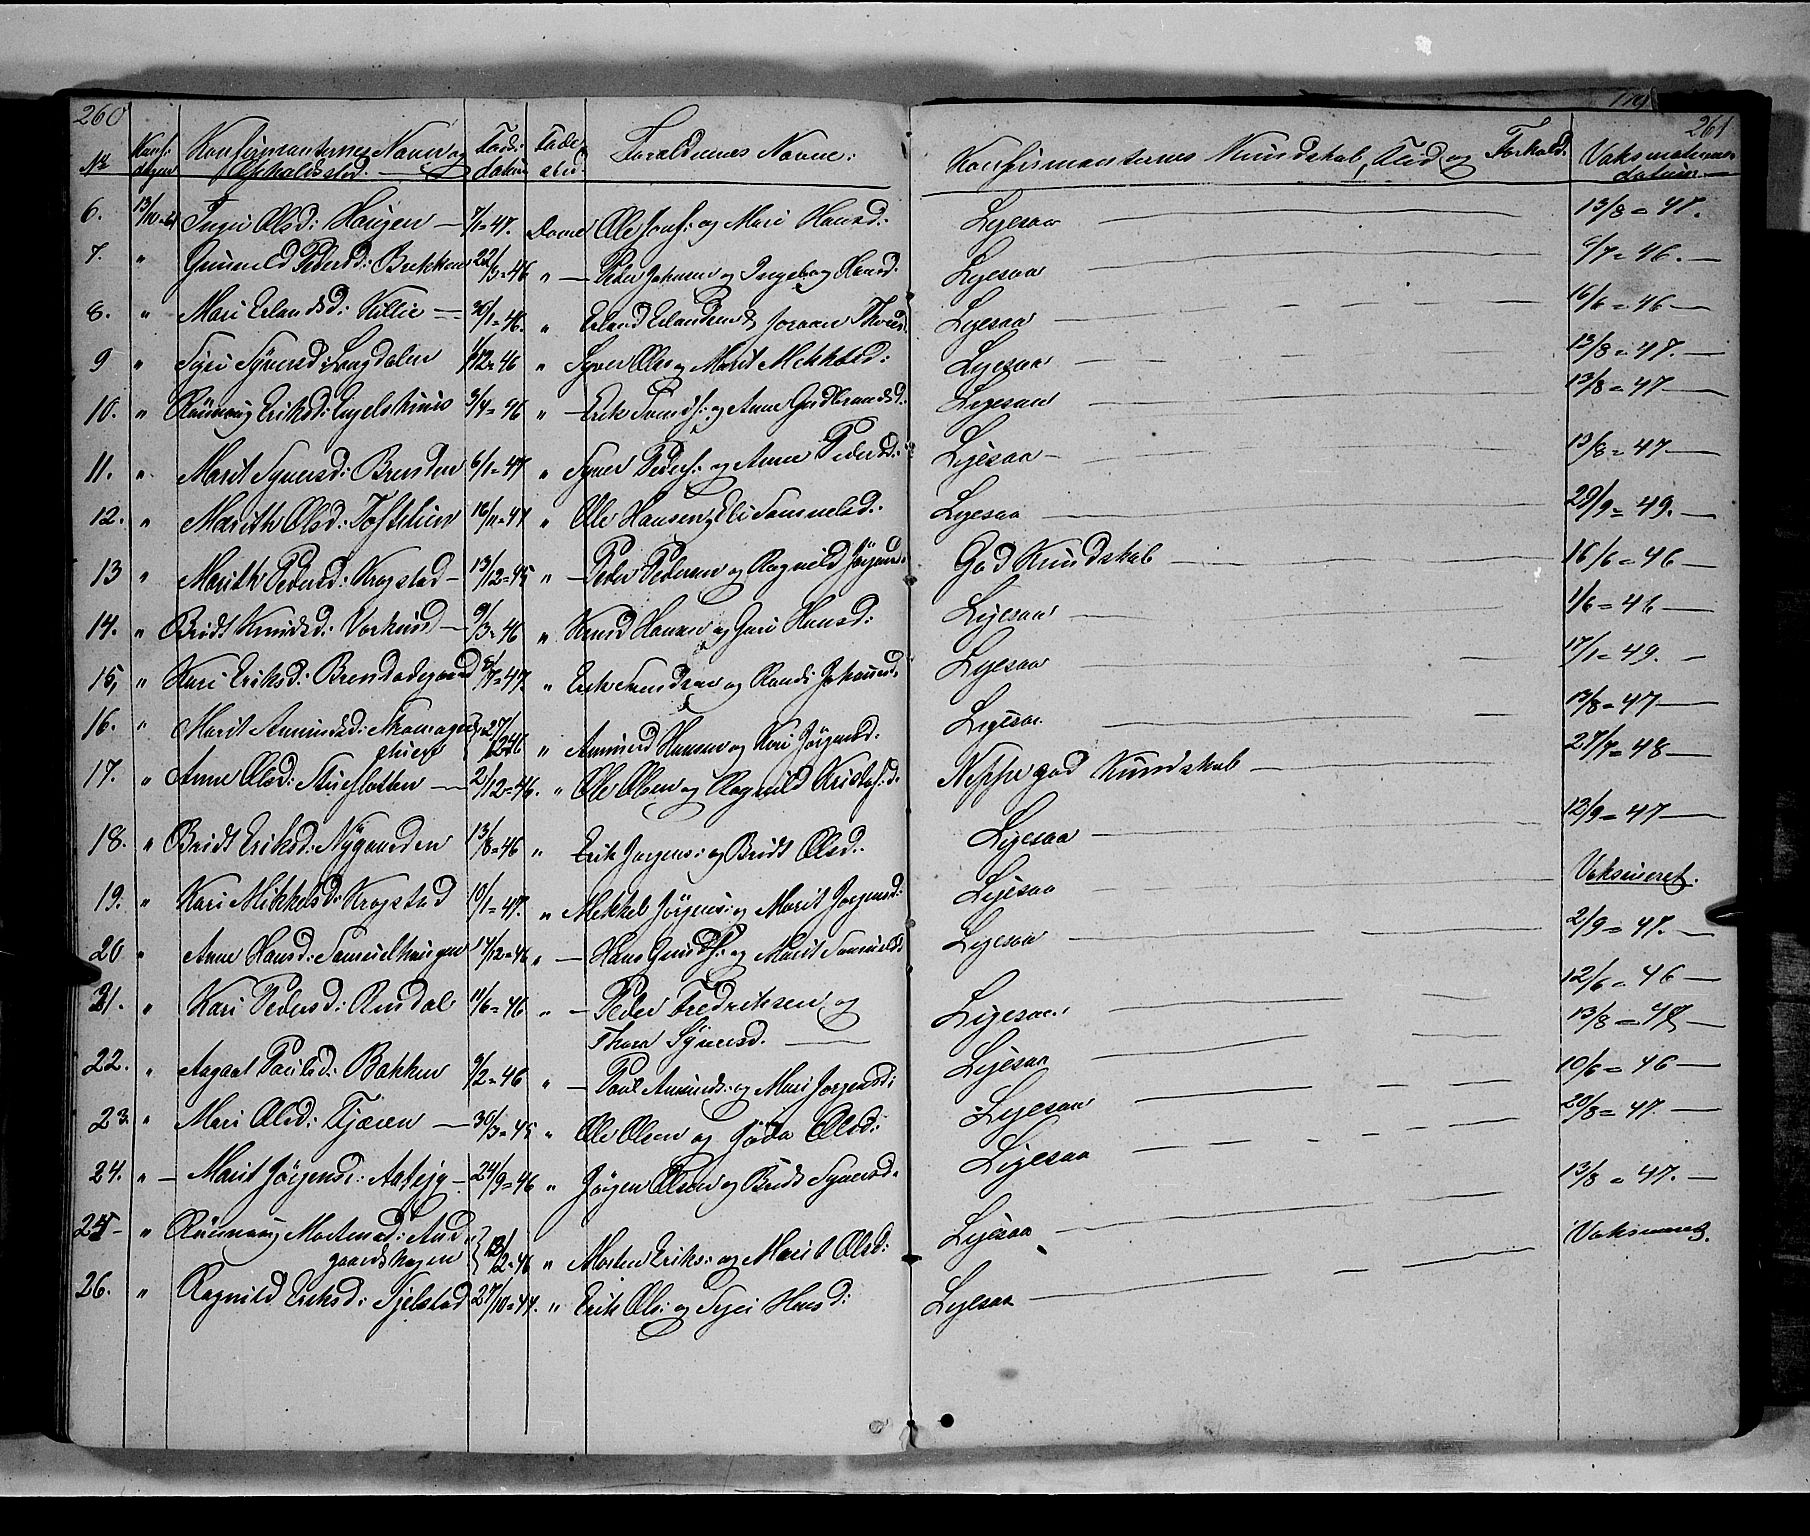 260
119
261
No Konf: datum Konfirmanternes Navn og Opholdssted. Føds: datum Føde sted Foraldrenes Navne: Konfirmanternes Kundskab, Flid og Forhold: Vaksinations datum
6. 13/10=61 Inger Olsd: Haugen — 7/1=47. Dovre Ole Jonss: og Mari Hansd: Ligesaa — 13/8=47.
7. " Gunnild Pedersd: Brekken 22/3=46 " — Peder Johnsen og Ingeborg Hansd: Ligesaa — /7=46. —
8. " Mari Erlandsd: Killie — 30/1=46. " Erland Erlandsen & Joraan Thord: Ligesaa — 16/6=46 —
9 " Siri Syversd: 12=46 " Syver Olss og Marit Mikkelsd: Ligesaa — 13/8=47. —
10. " Rønnaug Eriksd: Engelshuus 3/4=46 " — Erik Svends: og Anne Gudbrandsd: Ligesaa — 13/8=47 —
11. " Marit Syversd: Brenden 6/1=47 " Syver Peders: og Anne Pedersd: Ligesaa — 13/8=47 —
12. " Marith Olsd: Toftelien 16/11=47 " Ole Hansen, Eli Samuelsd: Ligesaa — 29/9=49. —
13 " Marith Pedersd: Krogstad — 13/12=45 " — Peder Pedersen og Ragnild Jørgensd: God Kundskab — 16/6=46 —
14. " Bridt Knudsd: Vorkind — 9/3=46 " Knud Hansen og Guri Hansd: Ligesaa — 1/6=46 —
15, " Kari Eriksd: Brendadegaard 8/7=47. " Erik Svendsen og Randi Johannesd: Ligesaa — 17/1=49. —
16. " Marit Amundsd: Skomager
stuen } 27/12=46 " Amund Hansen og Kari Jørgensd: Ligesaa — 13/8=47 —
17. " Anne Olsd: Stueflotten — 21/12=46. " Ole Olsen og Ragnild Kristofd: Neppe god Kundskab — 27/7=48 —
18. " Bridt Eriksd: Nygaarden 13/8=46 " Erik Jørgens: og Bridt Olsd: Ligesaa — 12/9=47 —
19. " Kari Mikkelsd: Krogstad 10/1=47. " Mikkel Jørgens: og Marit Jørgensd: Ligesaa — Vaksineret.
20 " Anne Hansd: Samuelhaugen 14/12=46 " — Hans Gunds: og Marit Samuelsd: Ligesaa — 2/9=47. —
21. " Kari Pedersd: Rindal 11/6=46 " — Peder Fredriksen og
Thora Syversd. — Ligesaa — 12/6=46 —
22. " Aagaat Paulsd: Bakken 9/2=46 " — Paul Amunds: og Mari Jørgensd: Ligesaa — 13/8=47 —
23. " Mari Olsd: Tjæren — 30/3=45 " Ole Olsen og Gøda Olsd: Ligesaa — 10/6=46 —
24. " — Marit Jørgensd: Aateig — 24/9=46 " Jørgen Olsen og Bridt Syversd. Ligesaa — 20/8=47. —
25 — " Rønnaug Mortensd: And
gaardshagen } 12/2=46 " Morten Eriks: og Marit Olsd: Ligesaa — 13/8=47. —
26. " Ragnild Eriksd: Tjelstad 27/10=44. " Erik Ols: og Siri Hansd: Ligesaa — Vaksineret.